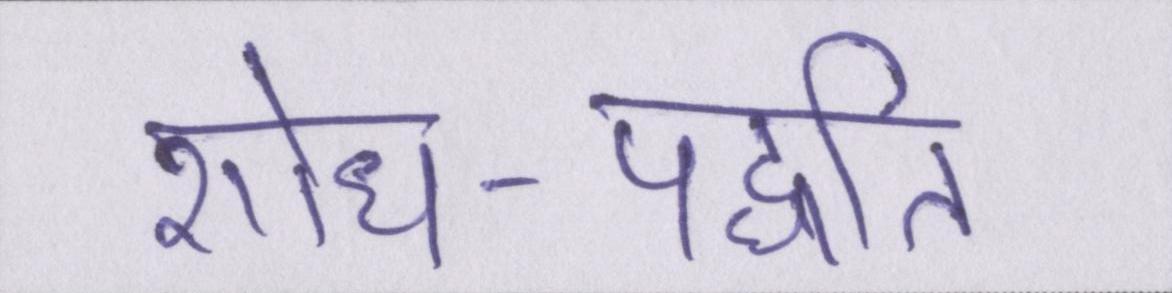 शोध-पद्धति